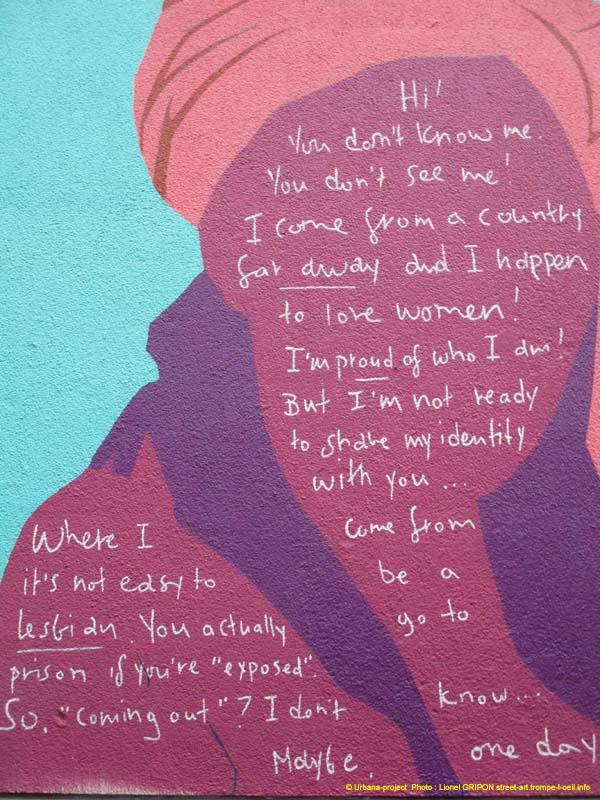 Hi!
You don't know me.
You don't see me!
I come from a country
far away and I happen
to love women!
I'm proud of who I am!
But I'm not ready
to share my identity
with you ...
Where I come from
it's not easy to be a
lesbian. You actually go to
prison if you're "exposed".
So, "coming out"? I don't know...
Maybe, one day
© Urbana-project Photo : Lionel GRIPON street-art.trompe-l-oeil.info